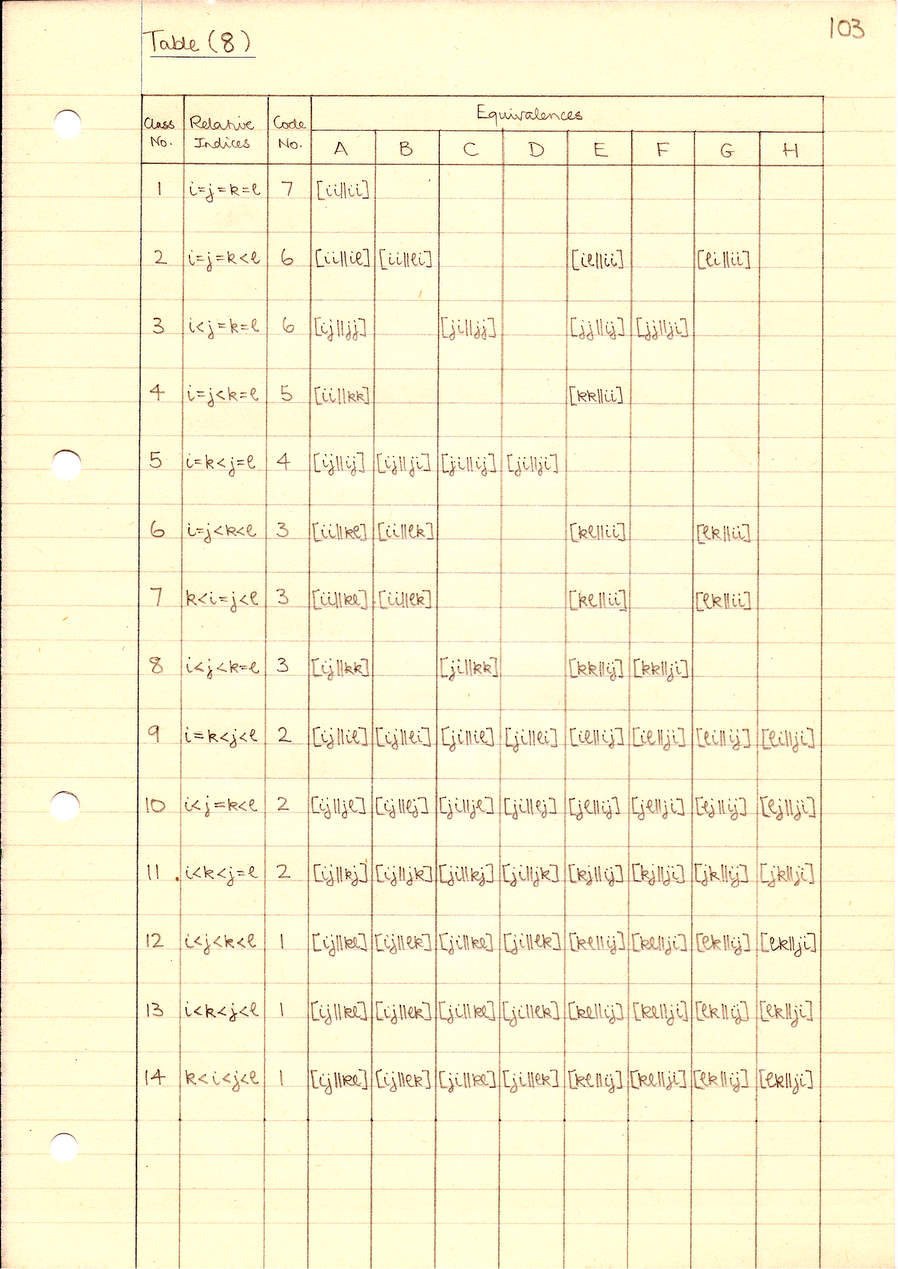 103
Table (8)
Equivalences
Class No. Relative Indices Code No. A B C D E F G H
1 i=j=k=l 7 [ii||ii]
2 i=j=k<l 6 [ii||il] [ii||li] [il||ii] [li||ii]
3 i<j=k=l 6 [ij||jj] [ji||jj] [jj||ij] [jj||ji]
4 i=j<k=l 5 [ii||kk] [kk||ii]
5 i=k<j=l 4 [ij||ij] [ij||ji] [ji||ij] [ji||ji]
6 i=j<k<l 3 [ii||kl] [ii||lk] [kl||ii] [lk||ii]
7 k<i=j<l 3 [ii||kl] [ii||lk] [kl||ii] [lk||ii]
8 i<j<k=l 3 [ij||kk] [ji||kk] [kk||ij] [kk||ji]
9 i=k<j<l 2 [ij||il] [ij||li] [ji||il] [ji||li] [il||ij] [il||ji] [li||ij] [li||ji]
10 i<j=k<l 2 [ij||jl] [ij||lj] [ji||jl] [ji||lj] [jl||ij] [jl||ji] [lj||ij] [lj||ji]
11 i<k<j=l 2 [ij||kj] [ij||jk] [ji||kj] [ji||jk] [kj||ij] [kj||ji] [jk||ij] [jk||ji]
12 i<j<k<l 1 [ij||kl] [ij||lk] [ji||kl] [ji||lk] [kl||ij] [kl||ji] [lk||ij] [lk||ji]
13 i<k<j<l 1 [ij||kl] [ij||lk] [ji||kl] [ji||lk] [kl||ij] [kl||ji] [lk||ij] [lk||ji]
14 k<i<j<l 1 [ij||kl] [ij||lk] [ji||kl] [ji||lk] [kl||ij] [kl||ji] [lk||ij] [lk||ji]